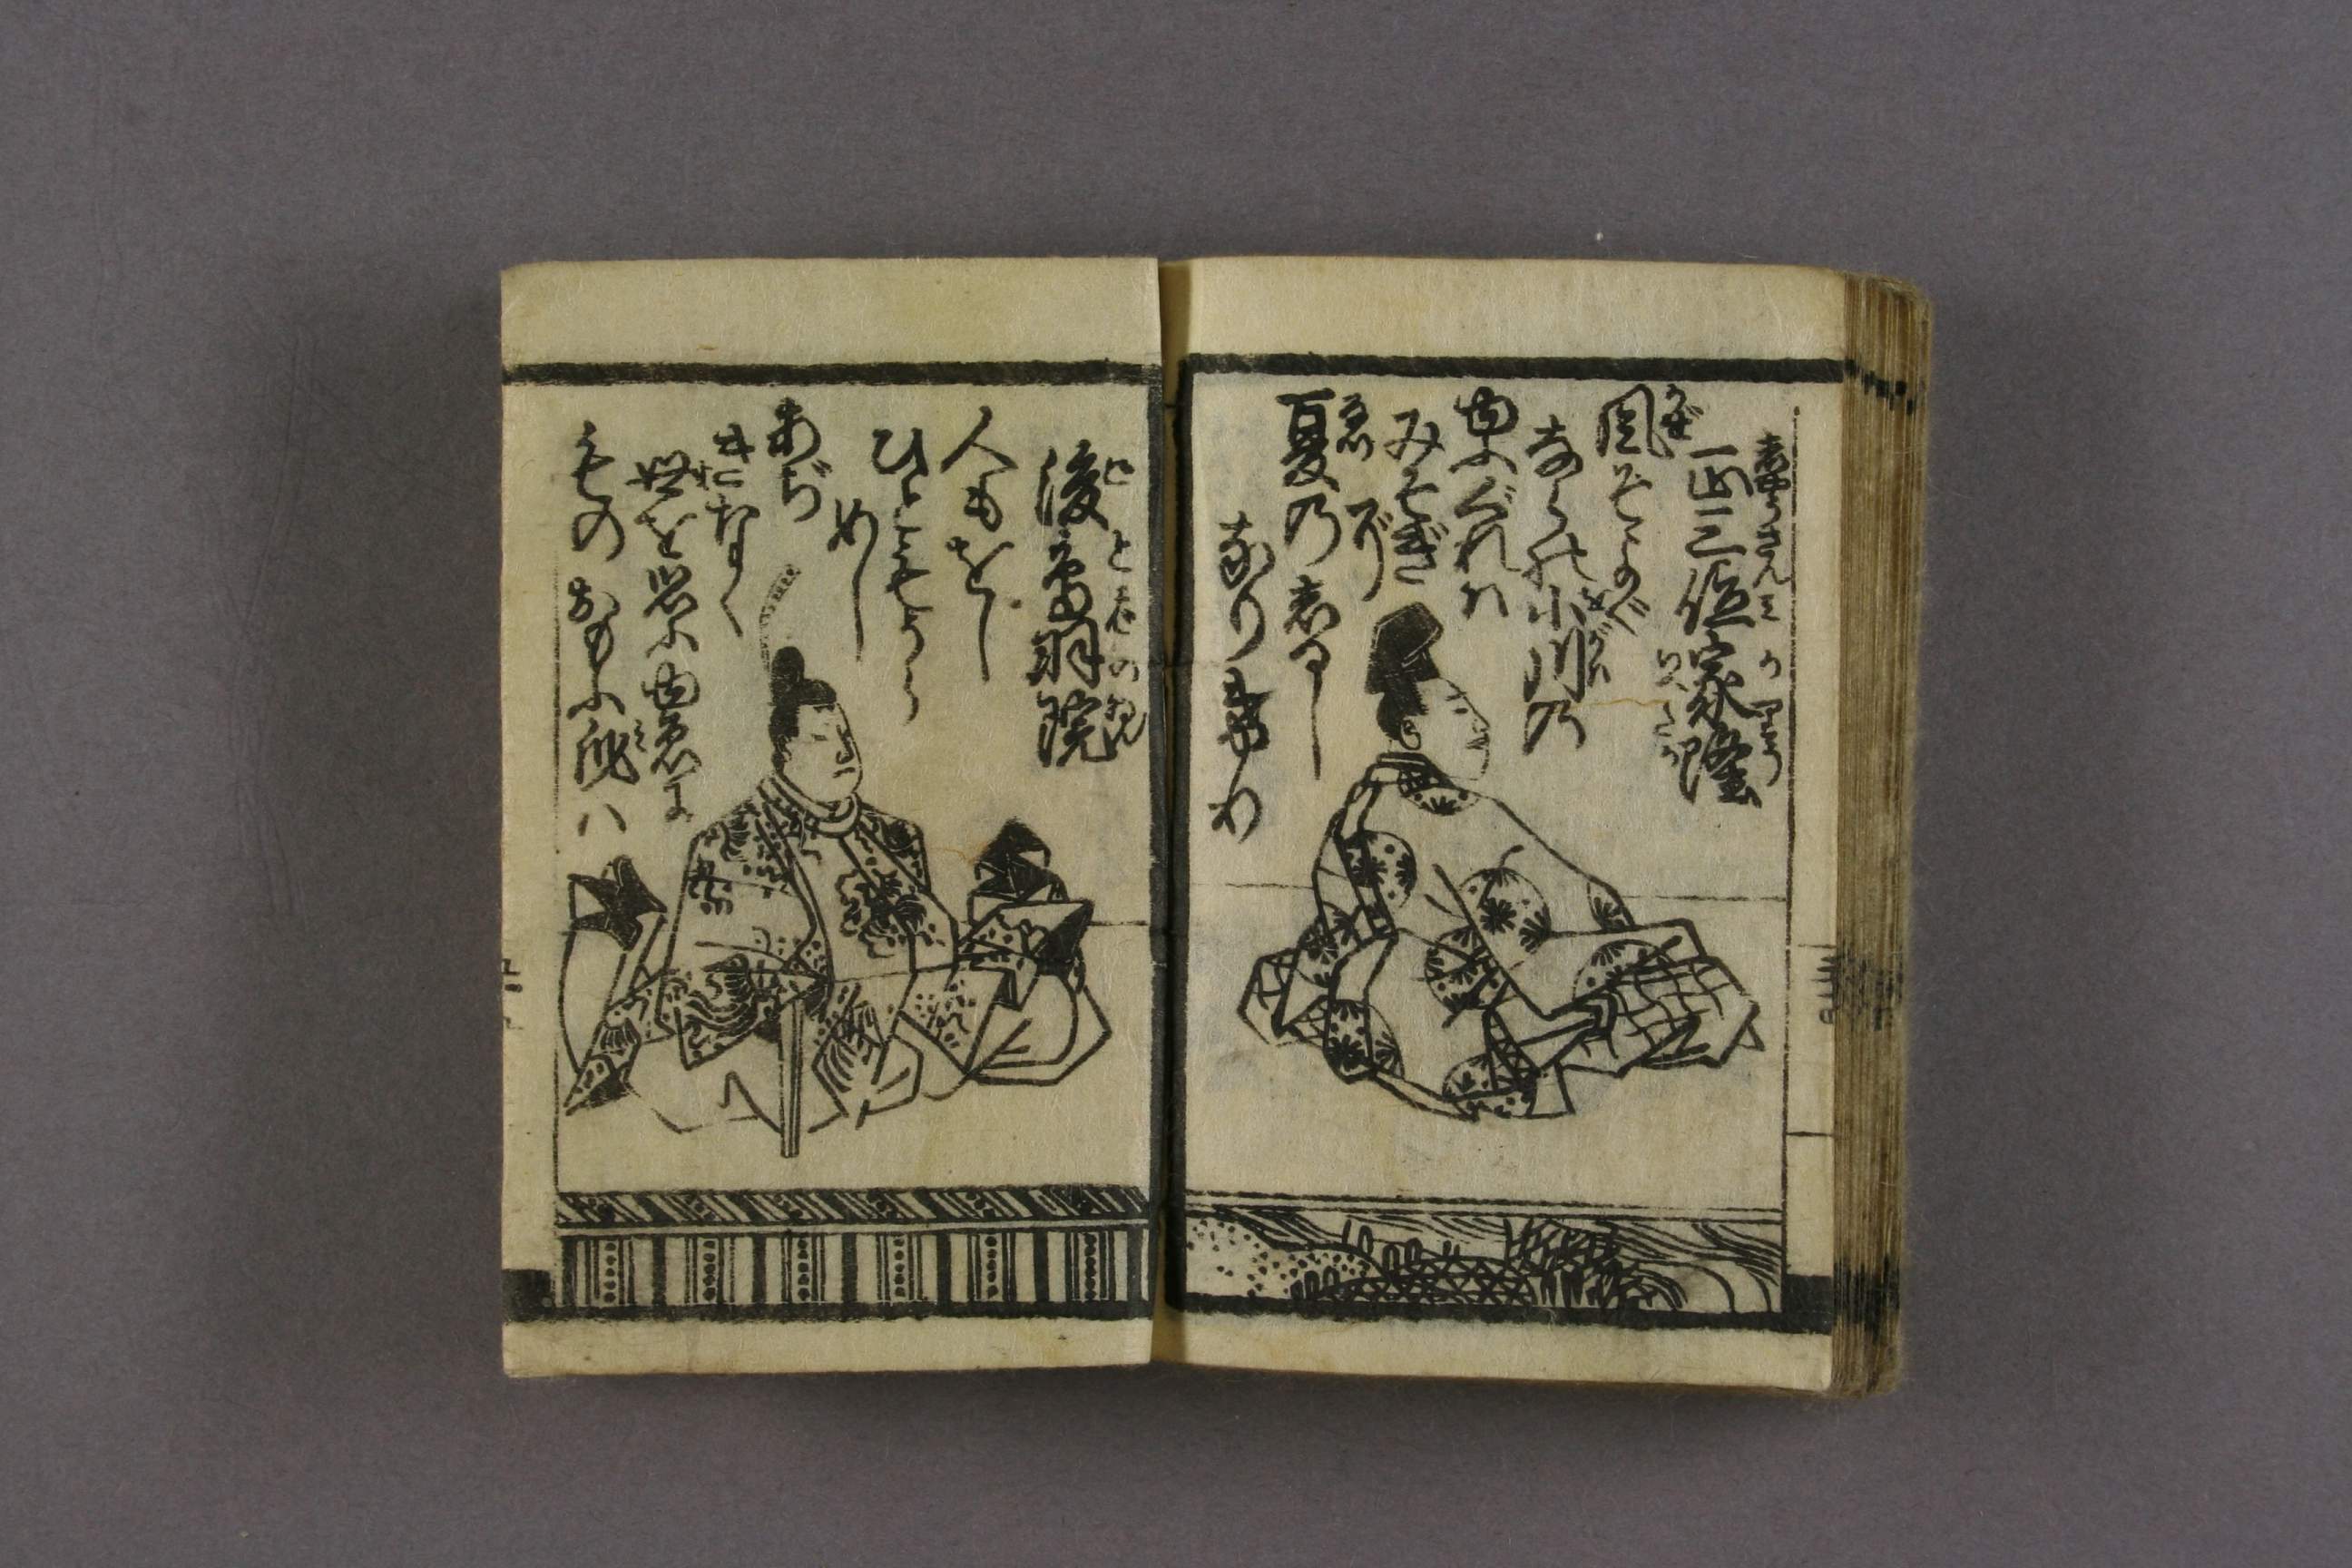 正三位家隆
風そよぐ
ならの小川の
ゆふぐれハ
みそぎ
ぞ
夏のしるし
なりける
後鳥羽院
人もをし
ひともうら
めし
あぢ
きなく
世を思ふゆゑに
もの おもふ身ハ